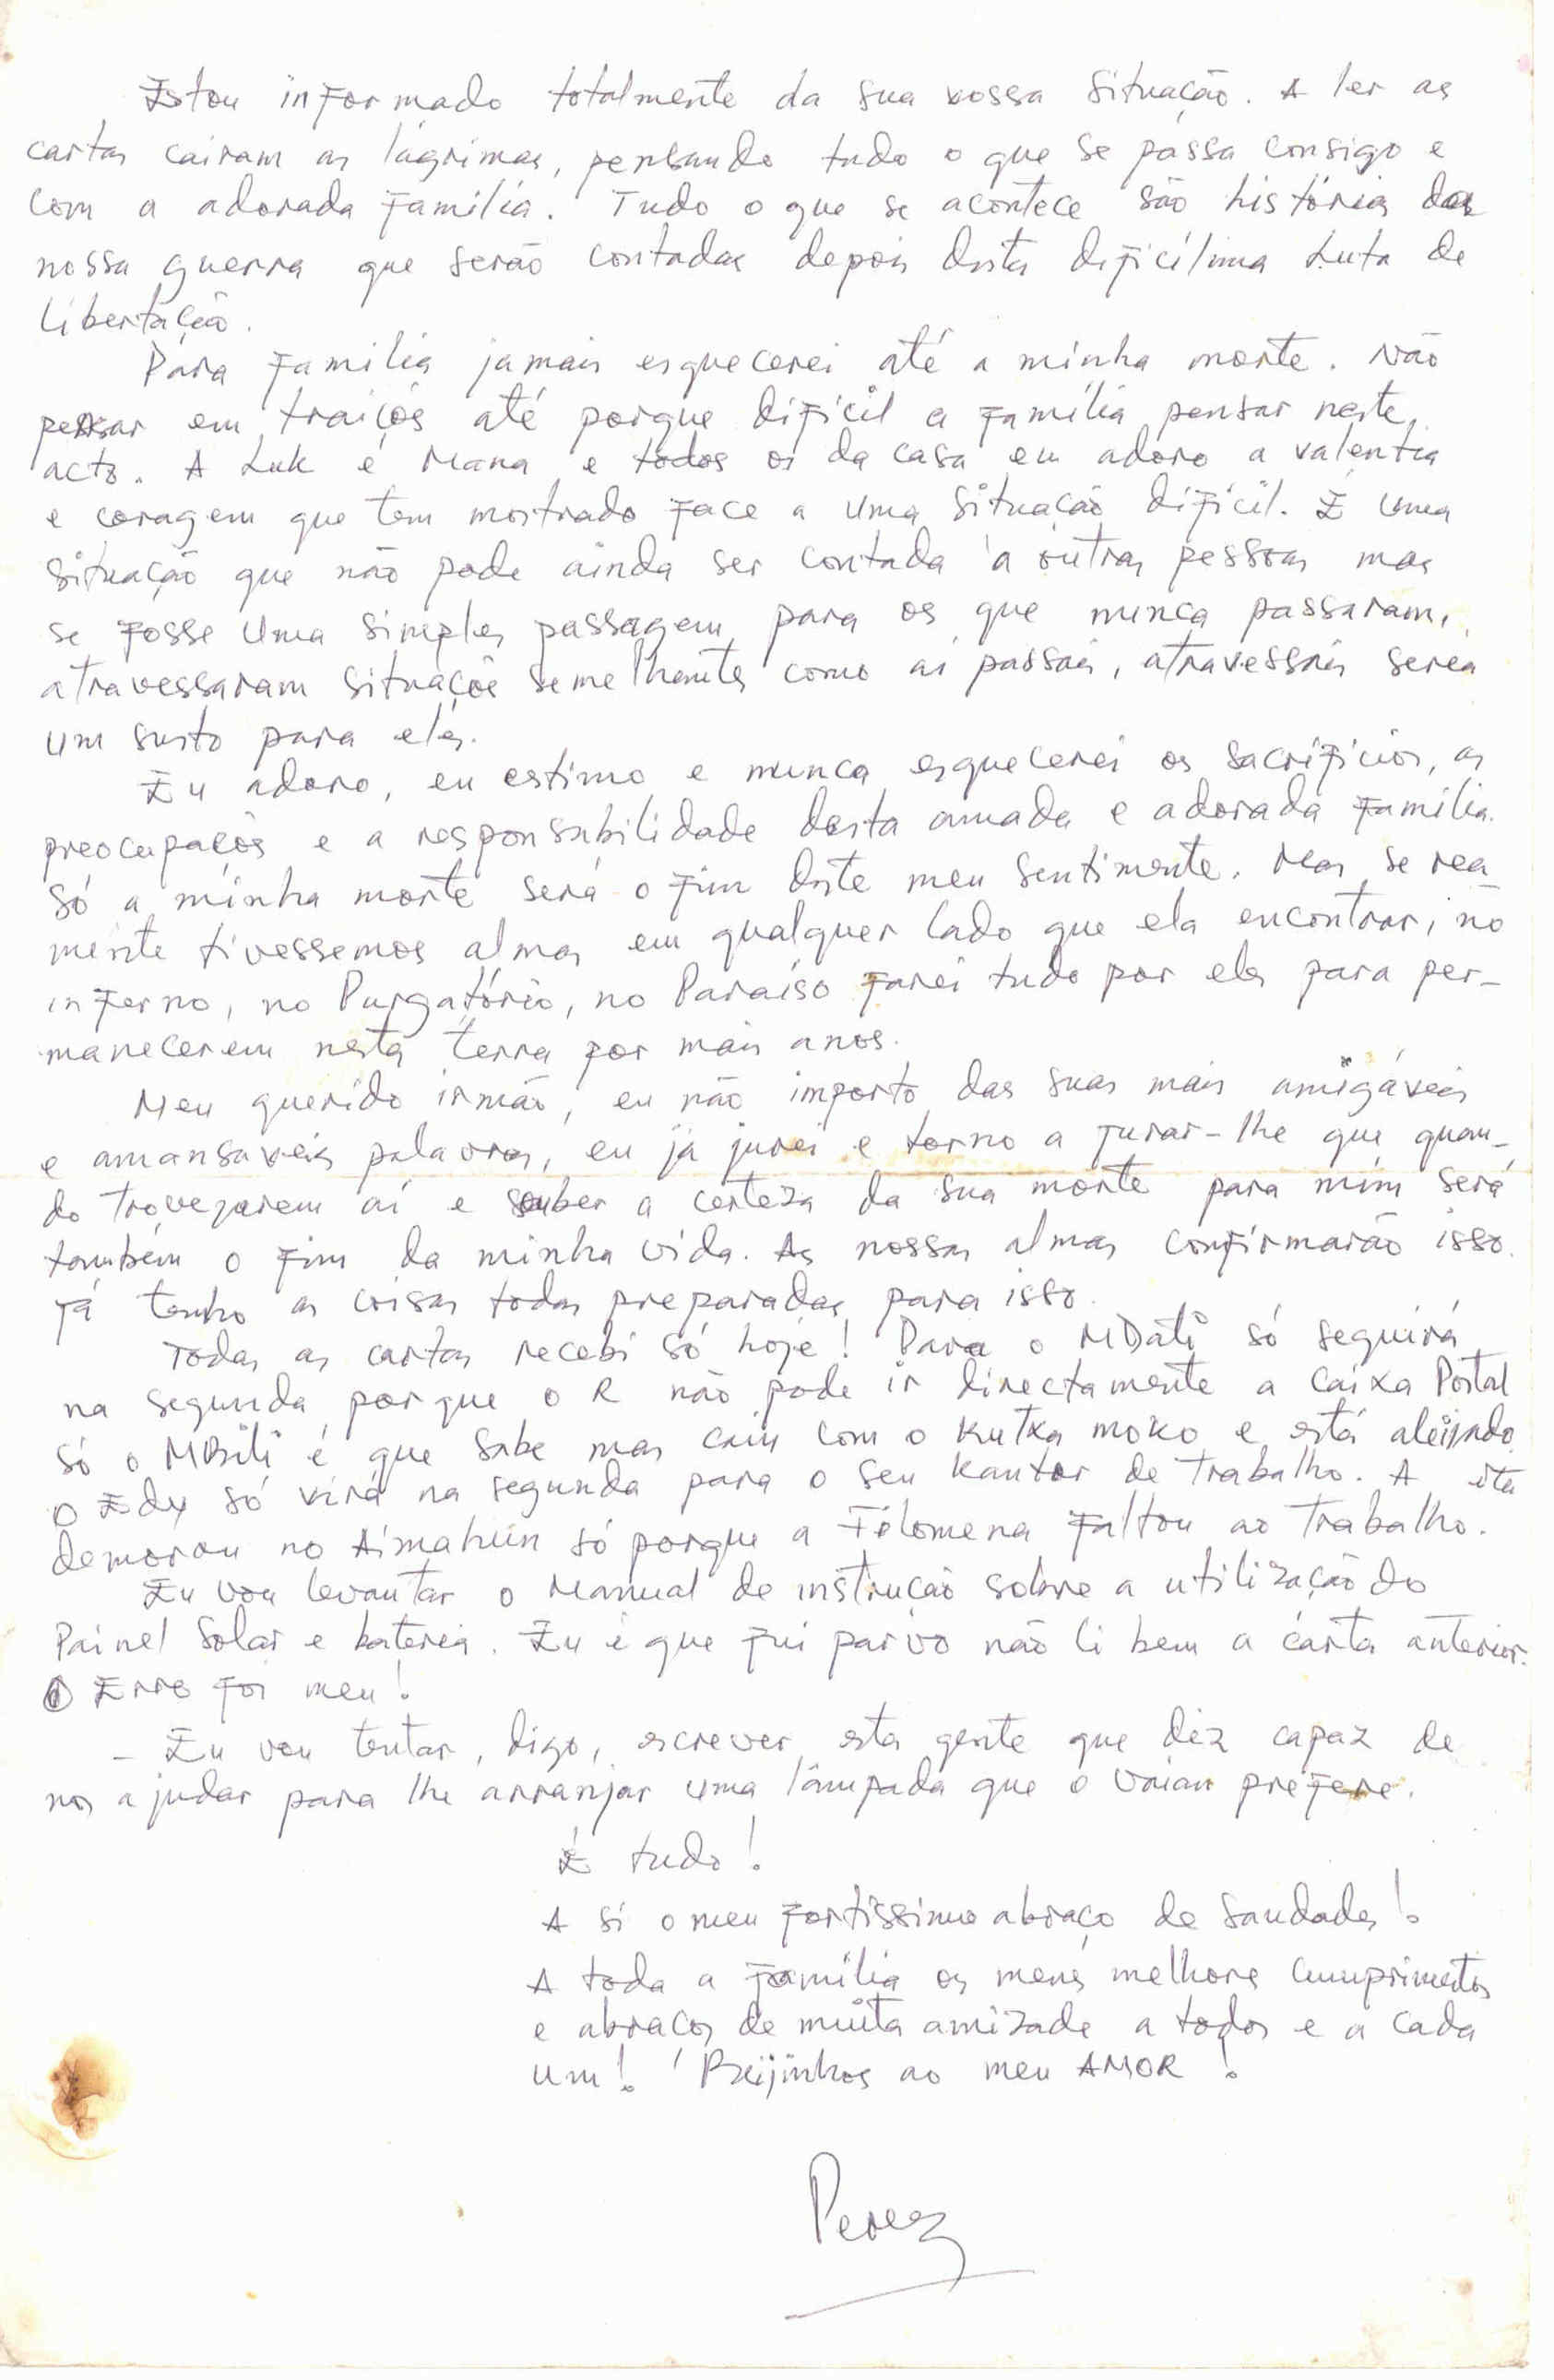 Estou informado totalmente da sua vossa situação. A ler as
cartas cairam as lágrimas, pensando tudo o que se passa consigo e
com a adorada família. Tudo o que se acontece são histórias das
nossa guerra que serão contadas depois desta dificílima Luta de
Libertação.
Para família jamais esquecerei até a minha morte. Não
pensar em traições até porque difícil a família pensar neste
acto. A Luk é Mana e todos os da casa eu adoro a valentia
e coragem que tem mostrado face a uma situação difícil. É uma
situação que não pode ainda ser contada à outras pessoas mas
se fosse uma simples passagem para os que nunca passaram,
atravessaram situaçõe semelhantes como aí passais, atravessais seria
um susto para eles.
Eu adoro, eu estimo e nunca esquecerei os sacrifícios, as
preocupações e a responsabilidade desta amada e adorada família.
Só a minha morte será o fim deste meu sentimente. Mas se rea
mente tivessemos almas em qualquer lado que ela encontrar, no
inferno, no Purgatório, no Paraíso farei tudo por eles para per-
manecerem nesta terra por mais anos.
Meu querido irmão, eu não importo das suas mais amigáveis
e amansaveis palavras, eu já jurei e torno a jurar-lhe que quan-
do trovejarem aí e souber a certeza da sua morte para mim será
também o fim da minha vida. As nossas almas confirmarão isso.
Já tenho as coisas todas preparadas para isso.
Todas as cartas recebi só hoje! Para o MDati só seguirá
na segunda porque o R não pode ir directamente a Caixa Postal
só o MBili é que sabe mas caiu com o Kutxa moko e está aleijado.
O Edy só virá na segunda para o seu Kantor de trabalho. A ita
demorou no Aimahun só porque a Filomena faltou ao trabalho.
Eu vou levantar o Manual de instrução sobre a utilização do
Painel Solar e bateria. Eu é que fui parvo não li bem a carta anterior.
O Erro foi meu!
- Eu vou tentar, digo, escrever esta gente que diz capaz de
nos ajudar para lhe arranjar uma lâmpada que o prefere.
É tudo!
A si o meu fortíssimo abraço de Saudades!
A toda a família os meus melhores cumprimentos
e abraços de muita amizade a todos e a cada
um! Beijinhos ao meu AMOR!
Perez